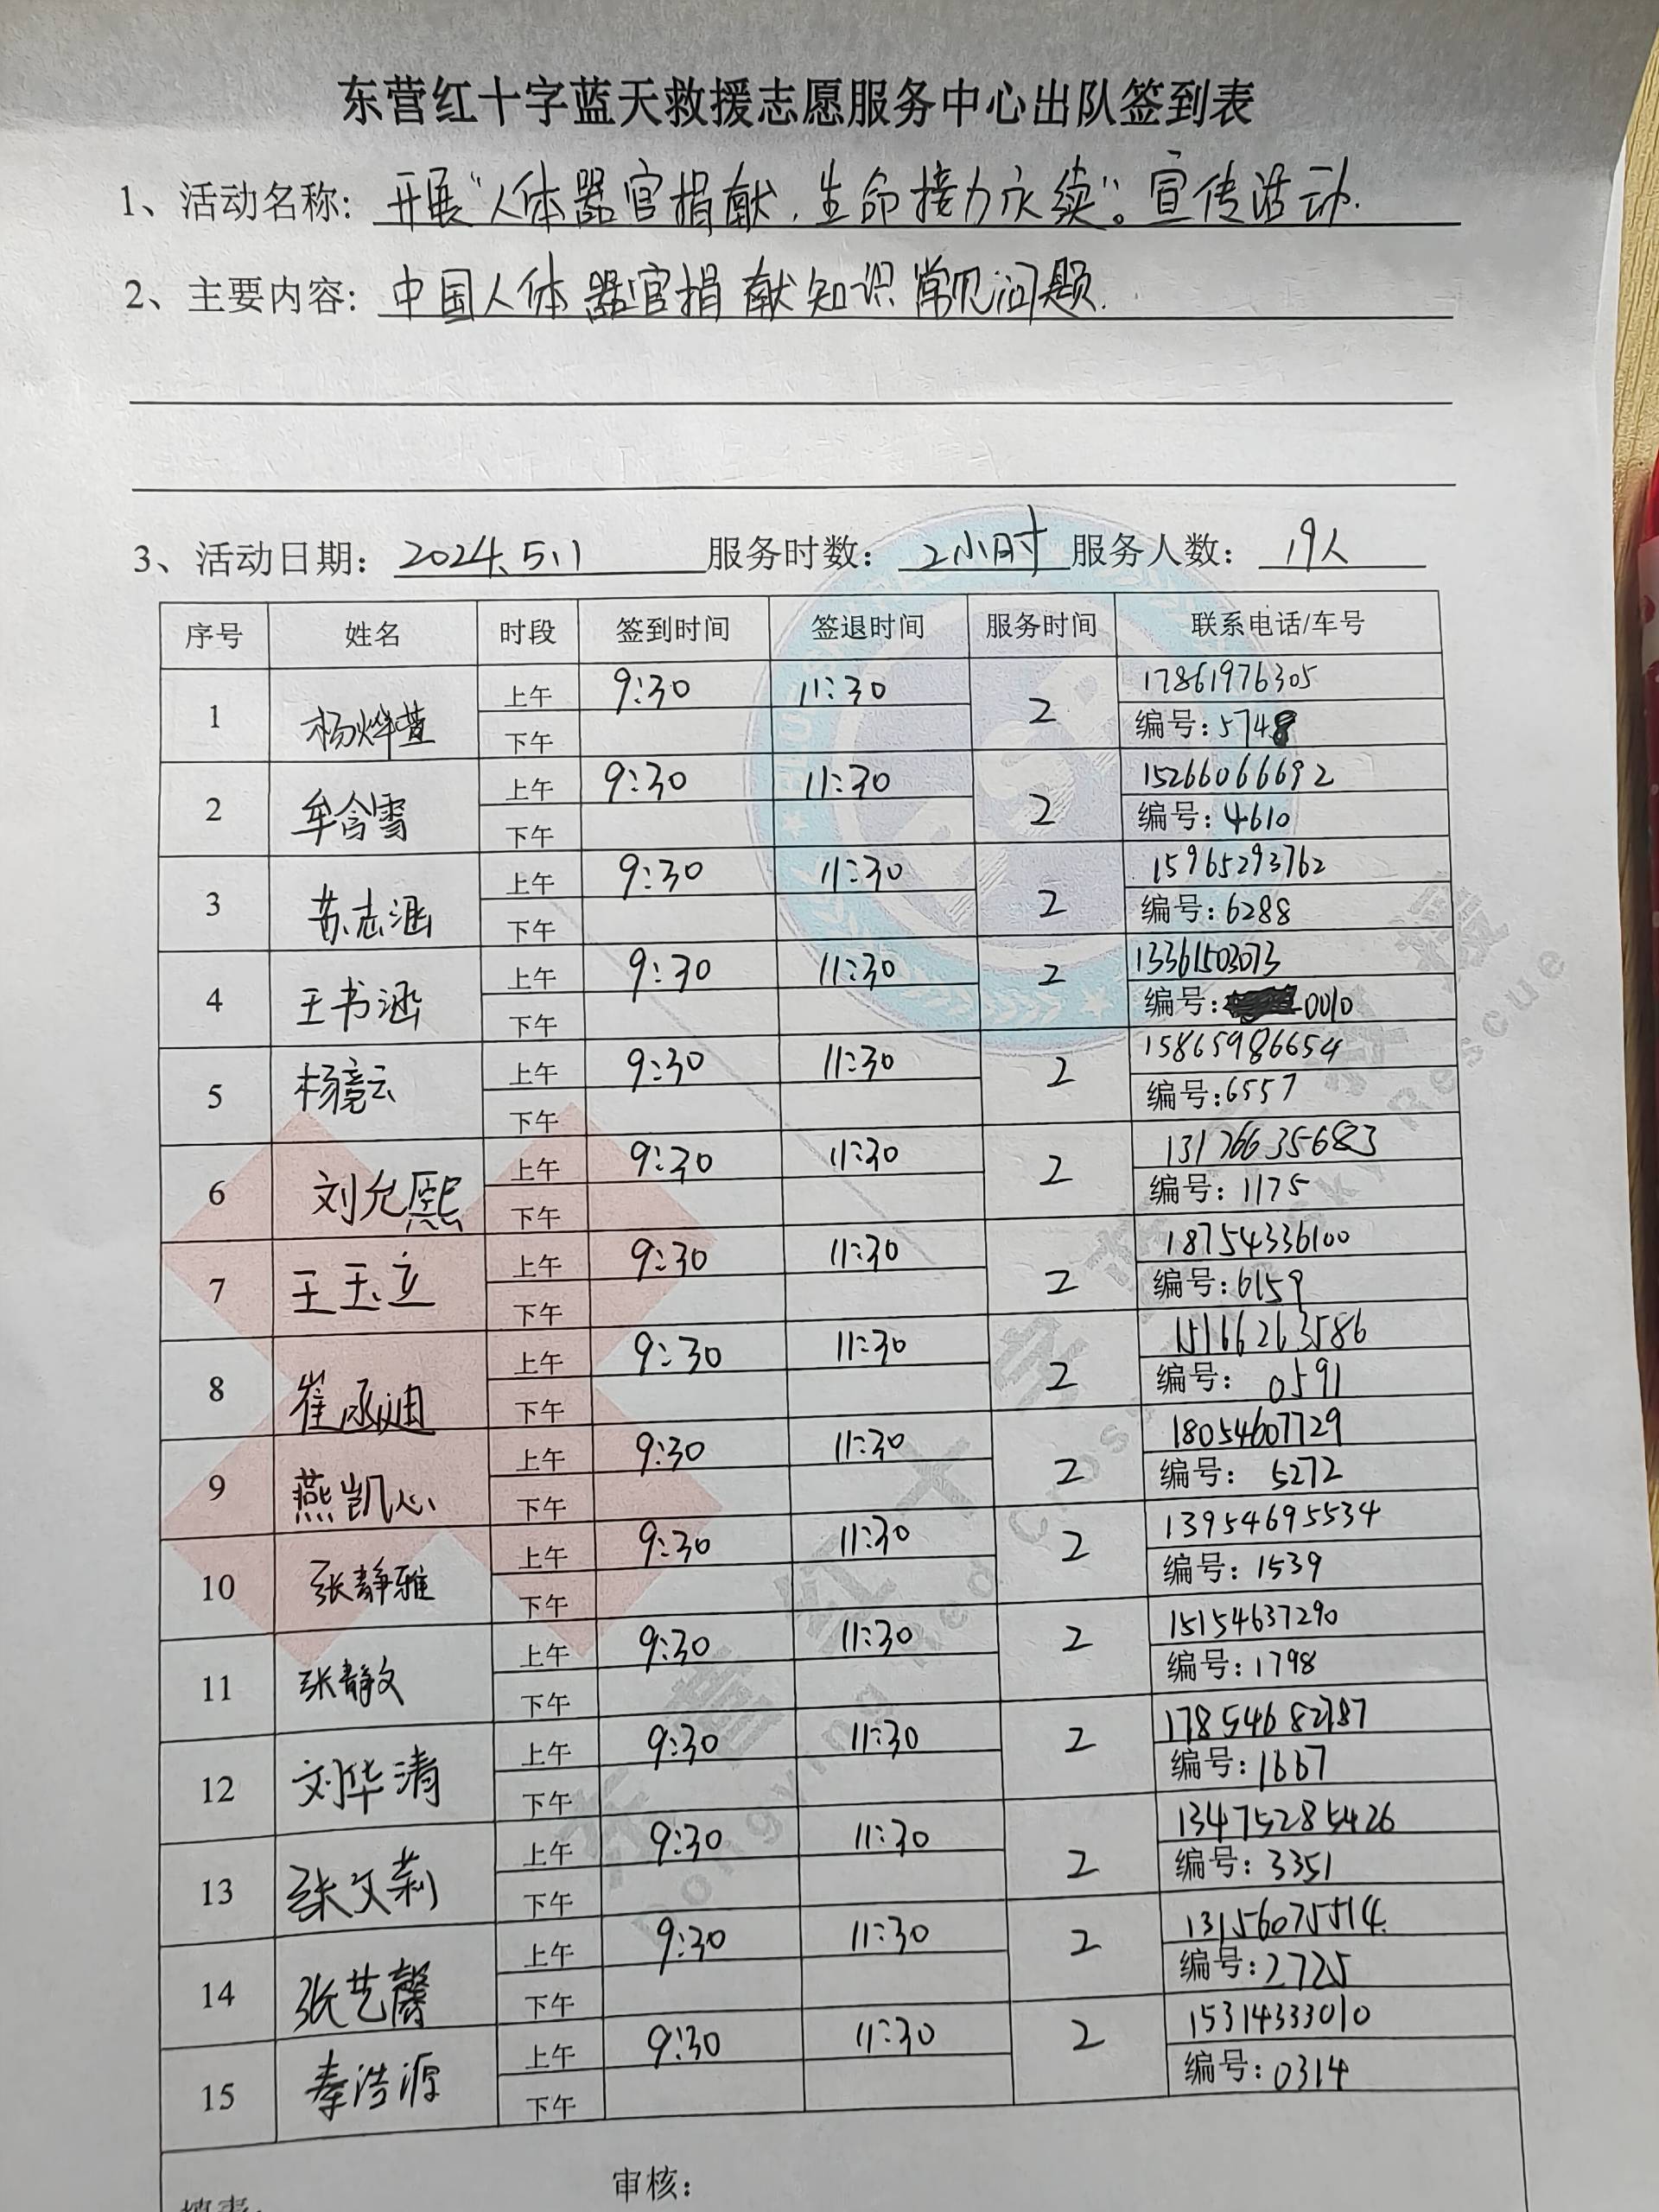 东营红十字蓝天救援志愿服务中心出队签到表
1、活动名称: 开展“人体器官捐献，生命接力永续”。宣传活动.
2、主要内容: 中国人体器官捐献知识常见问题.
3、活动日期: 2024.5.1 服务时数: 2小时 服务人数: 19人
序号 姓名 时段 签到时间 签退时间 服务时间 联系电话/车号
1 杨烨萱 上午 9:30 11:30 2 17861976305
下午 编号: 5748
2 牟含雪 上午 9:30 11:30 2 15266066692
下午 编号: 4610
3 苏志涵 上午 9:30 11:30 2 15965293762
下午 编号: 6288
4 王书涵 上午 9:30 11:30 2 13361503073
下午 编号: 0010
5 上午 9:30 11:30 2 15865986654
下午 编号: 6557
6 刘允熙 上午 9:30 11:30 2 13176635683
下午 编号: 1175
7 王玉立 上午 9:30 11:30 2 18754336100
下午 编号: 6159
8 崔承迪 上午 9:30 11:30 2 15166263586
下午 编号: 0591
9 燕凯心 上午 9:30 11:30 2 18054607729
下午 编号: 5272
10 张静雅 上午 9:30 11:30 2 13954695534
下午 编号: 1539
11 张静文 上午 9:30 11:30 2 15154637290
下午 编号: 1798
12 刘华清 上午 9:30 11:30 2 17854682787
下午 编号: 1667
13 张文莉 上午 9:30 11:30 2 13475285426
下午 编号: 3351
14 张艺馨 上午 9:30 11:30 2 13156075514
下午 编号: 2725
15 秦浩源 上午 9:30 11:30 2 15314333010
下午 编号: 0314
审核: